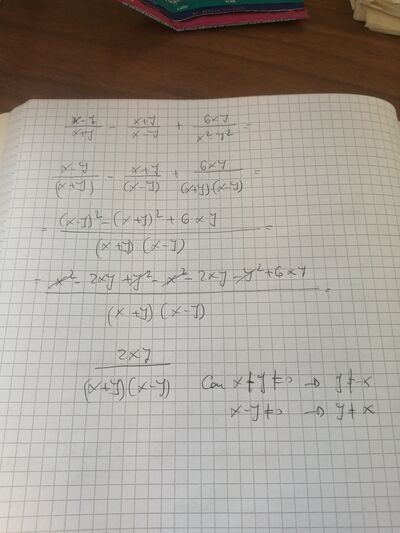 (x-y)/(x+y) - (x+y)/(x-y) + 6xy/(x²-y²) =
(x-y)/(x+y) - (x+y)/(x-y) + 6xy/((x+y)(x-y)) =
= ((x-y)² - (x+y)² + 6xy)/((x+y)(x-y)) =
= (x² - 2xy + y² - x² - 2xy - y² + 6xy)/((x+y)(x-y)) =
2xy/((x+y)(x-y)) Con x+y≠0 → y≠-x
x-y≠0 → y≠x